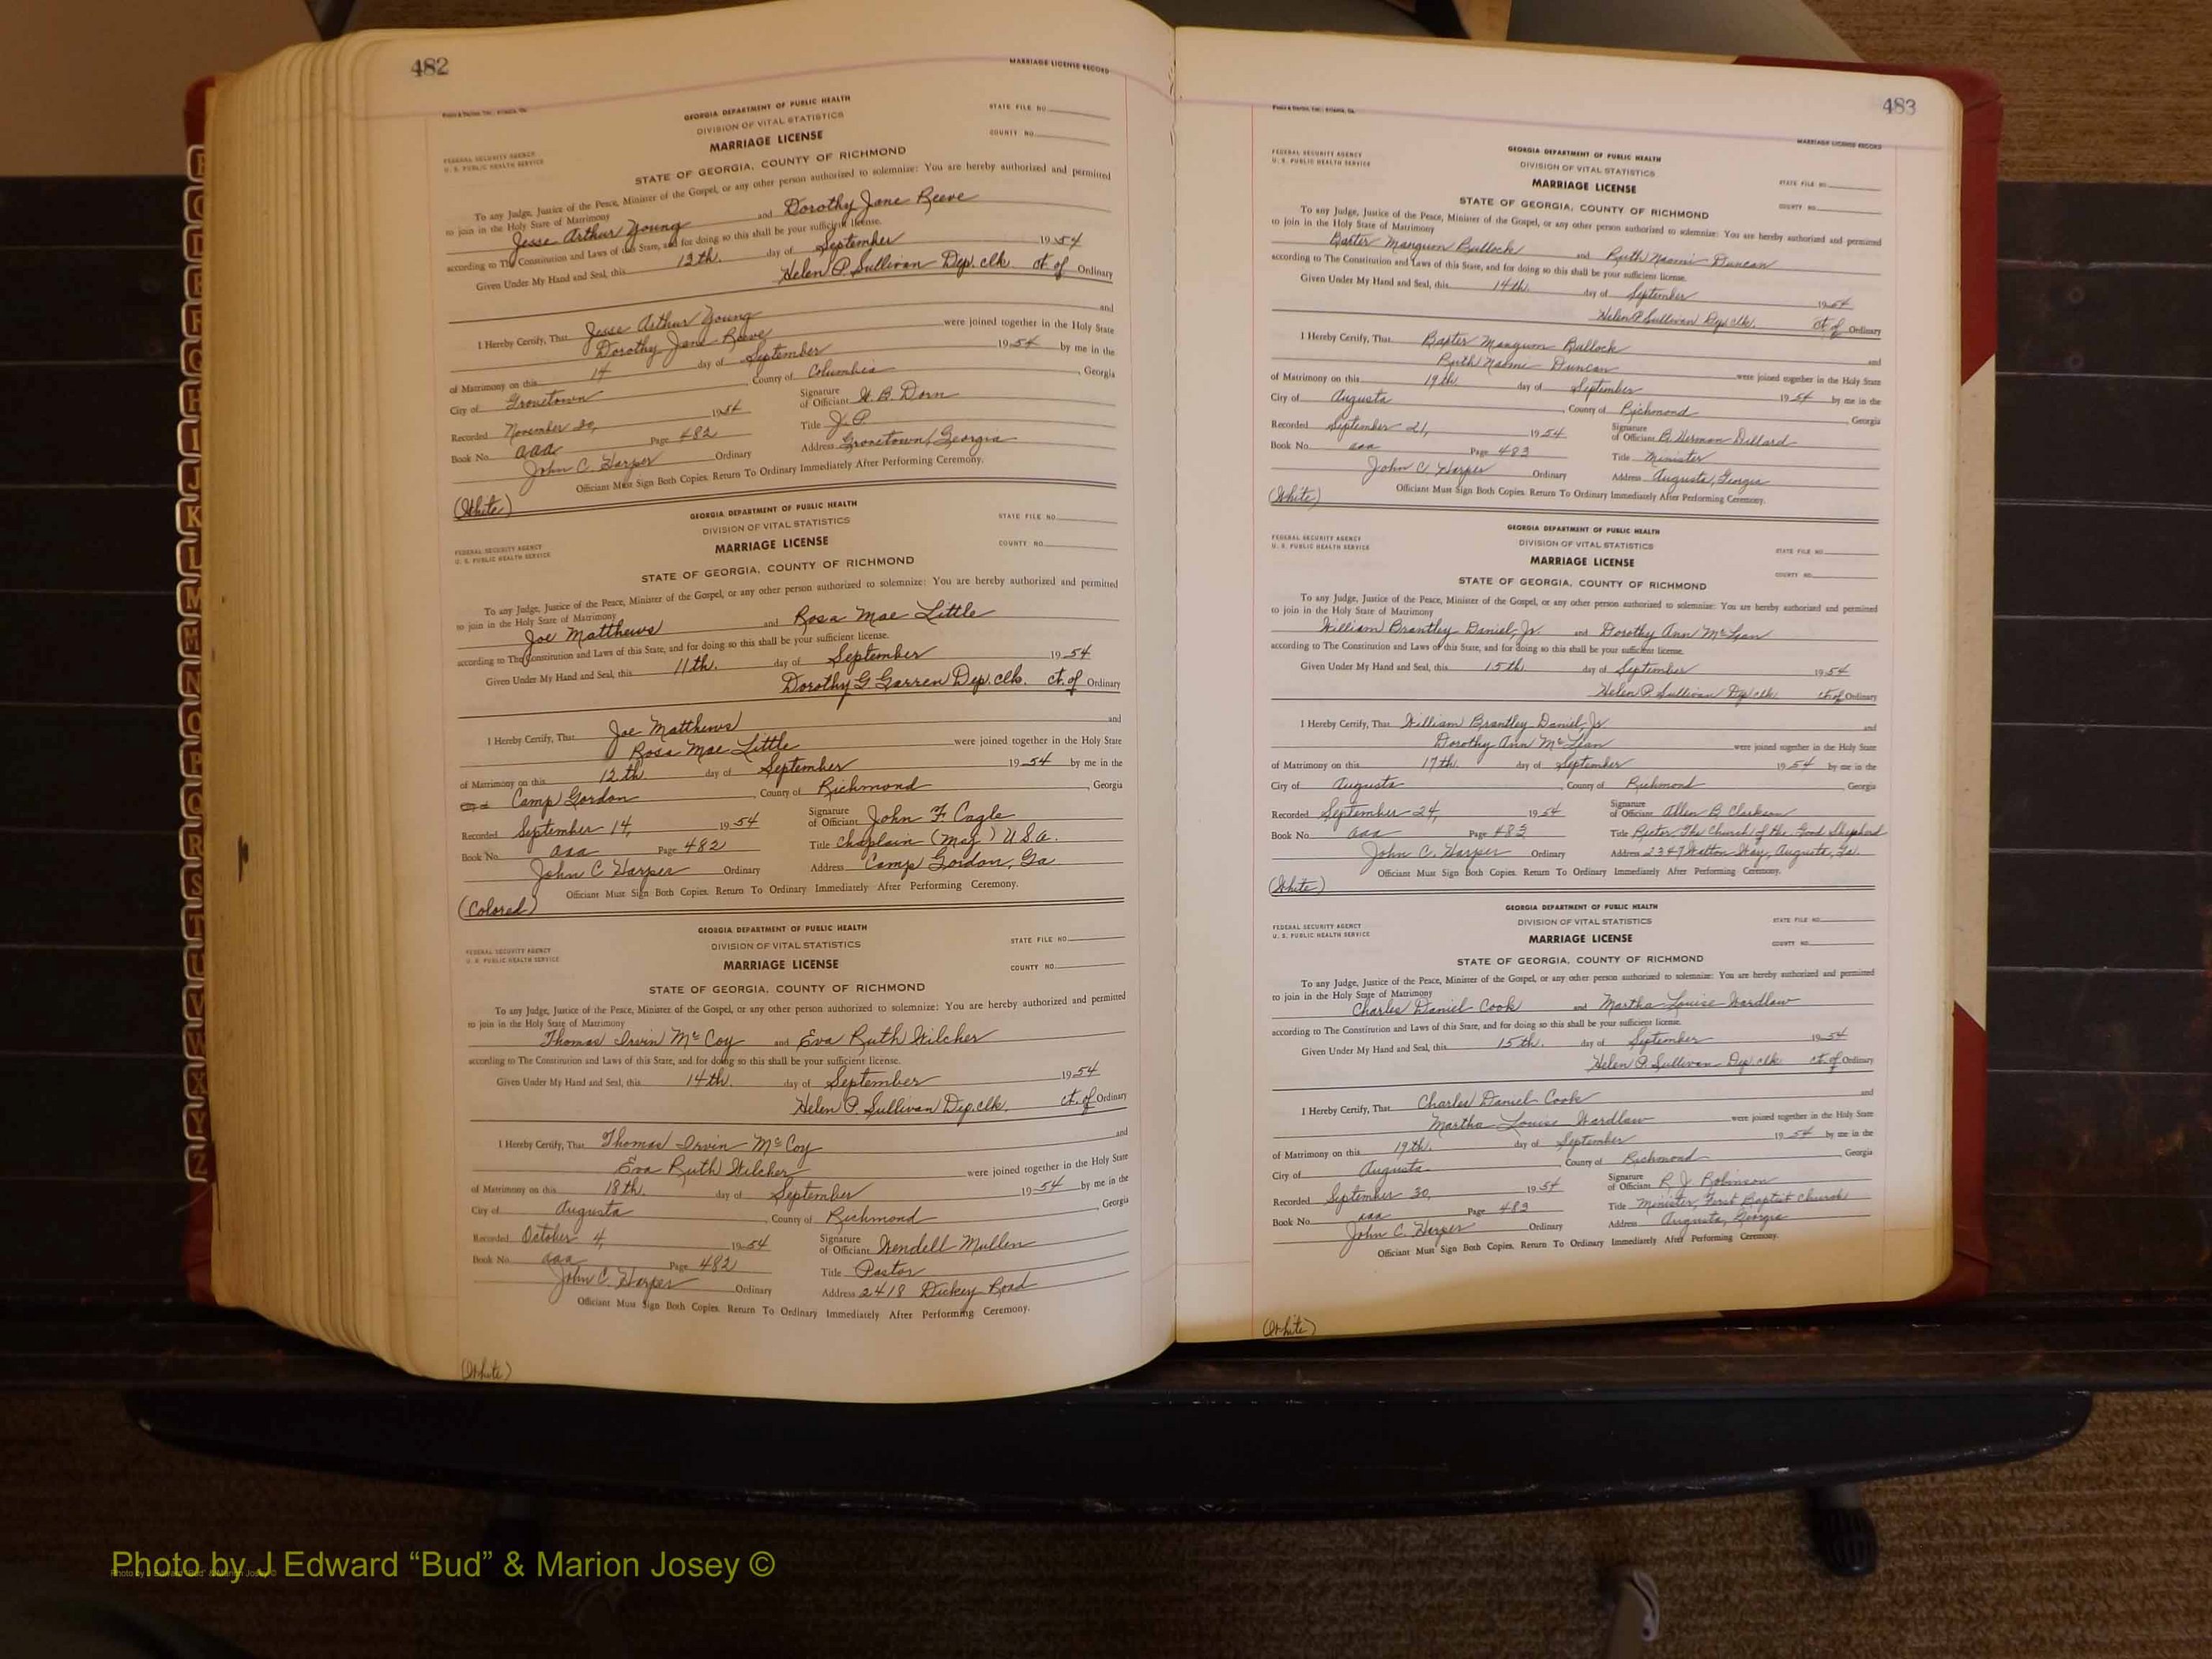 482
MARRIAGE LICENSE RECORD
GEORGIA DEPARTMENT OF PUBLIC HEALTH
DIVISION OF VITAL STATISTICS
MARRIAGE LICENSE
STATE FILE NO.
COUNTY NO.
FEDERAL SECURITY AGENCY
U. S. PUBLIC HEALTH SERVICE
STATE OF GEORGIA, COUNTY OF RICHMOND
To any Judge, Justice of the Peace, Minister of the Gospel, or any other person authorized to solemnize: You are hereby authorized and permitted
to join in the Holy State of Matrimony
Jesse Arthur Young and Dorothy Jane Reeve
according to The Constitution and Laws of this State, and for doing so this shall be your sufficient license.
Given Under My Hand and Seal, this 13th. day of September 1954
Helen P. Sullivan Dep. clk. ct. of Ordinary
I Hereby Certify, That Jesse Arthur Young and
Dorothy Jane Reeve were joined together in the Holy State
of Matrimony on this 14 day of September 1954 by me in the
City of Grovetown County of Columbia, Georgia
Recorded November 30, 1954 Signature of Officiant W. B. Dorn
Book No. aaa Page 482 Title J. P.
John C. Harper Ordinary Address Grovetown, Georgia
Officiant Must Sign Both Copies. Return To Ordinary Immediately After Performing Ceremony.
(White)
GEORGIA DEPARTMENT OF PUBLIC HEALTH
DIVISION OF VITAL STATISTICS
MARRIAGE LICENSE
STATE FILE NO.
COUNTY NO.
FEDERAL SECURITY AGENCY
U. S. PUBLIC HEALTH SERVICE
STATE OF GEORGIA, COUNTY OF RICHMOND
To any Judge, Justice of the Peace, Minister of the Gospel, or any other person authorized to solemnize: You are hereby authorized and permitted
to join in the Holy State of Matrimony
Joe Matthews and Rosa Mae Little
according to The Constitution and Laws of this State, and for doing so this shall be your sufficient license.
Given Under My Hand and Seal, this 11th. day of September 1954
Dorothy G. Garren Dep. clk. ct. of Ordinary
I Hereby Certify, That Joe Matthews and
Rosa Mae Little were joined together in the Holy State
of Matrimony on this 12th day of September 1954 by me in the
Camp Gordon, County of Richmond, Georgia
Recorded September 14, 1954 Signature of Officiant John F. Cagle
Book No. aaa Page 482 Title Chaplain (Maj) U.S.A.
John C. Harper Ordinary Address Camp Gordon, Ga
Officiant Must Sign Both Copies. Return To Ordinary Immediately After Performing Ceremony.
(Colored)
GEORGIA DEPARTMENT OF PUBLIC HEALTH
DIVISION OF VITAL STATISTICS
MARRIAGE LICENSE
STATE FILE NO.
COUNTY NO.
FEDERAL SECURITY AGENCY
U. S. PUBLIC HEALTH SERVICE
STATE OF GEORGIA, COUNTY OF RICHMOND
To any Judge, Justice of the Peace, Minister of the Gospel, or any other person authorized to solemnize: You are hereby authorized and permitted
to join in the Holy State of Matrimony
Thomas Irvin McCoy and Eva Ruth Wilcher
according to The Constitution and Laws of this State, and for doing so this shall be your sufficient license.
Given Under My Hand and Seal, this 14th. day of September 1954
Helen P. Sullivan Dep. clk. ct. of Ordinary
I Hereby Certify, That Thomas Irvin McCoy and
Eva Ruth Wilcher were joined together in the Holy State
of Matrimony on this 18th. day of September 1954 by me in the
City of Augusta, County of Richmond, Georgia
Recorded October 4, 1954 Signature of Officiant Wendell Mullen
Book No. aaa Page 482 Title Pastor
John C. Harper Ordinary Address 2418 Dickey Road
Officiant Must Sign Both Copies. Return To Ordinary Immediately After Performing Ceremony.
(White)
483
MARRIAGE LICENSE RECORD
GEORGIA DEPARTMENT OF PUBLIC HEALTH
DIVISION OF VITAL STATISTICS
MARRIAGE LICENSE
STATE FILE NO.
COUNTY NO.
FEDERAL SECURITY AGENCY
U. S. PUBLIC HEALTH SERVICE
STATE OF GEORGIA, COUNTY OF RICHMOND
To any Judge, Justice of the Peace, Minister of the Gospel, or any other person authorized to solemnize: You are hereby authorized and permitted
to join in the Holy State of Matrimony
Baxter Mangum Bullock and Ruth Naomi Duncan
according to The Constitution and Laws of this State, and for doing so this shall be your sufficient license.
Given Under My Hand and Seal, this 14th. day of September 1954
Helen P. Sullivan Dep. clk. ct. of Ordinary
I Hereby Certify, That Baxter Mangum Bullock and
Ruth Naomi Duncan were joined together in the Holy State
of Matrimony on this 19th day of September 1954 by me in the
City of Augusta, County of Richmond, Georgia
Recorded September 21, 1954 Signature of Officiant B. Herman Dillard
Book No. aaa Page 483 Title Minister
John C. Harper Ordinary Address Augusta, Georgia
Officiant Must Sign Both Copies. Return To Ordinary Immediately After Performing Ceremony.
(White)
GEORGIA DEPARTMENT OF PUBLIC HEALTH
DIVISION OF VITAL STATISTICS
MARRIAGE LICENSE
STATE FILE NO.
COUNTY NO.
FEDERAL SECURITY AGENCY
U. S. PUBLIC HEALTH SERVICE
STATE OF GEORGIA, COUNTY OF RICHMOND
To any Judge, Justice of the Peace, Minister of the Gospel, or any other person authorized to solemnize: You are hereby authorized and permitted
to join in the Holy State of Matrimony
William Brantley Daniel, Jr. and Dorothy Ann McLean
according to The Constitution and Laws of this State, and for doing so this shall be your sufficient license.
Given Under My Hand and Seal, this 15th. day of September 1954
Helen P. Sullivan Dep. clk. ct. of Ordinary
I Hereby Certify, That William Brantley Daniel, Jr. and
Dorothy Ann McLean were joined together in the Holy State
of Matrimony on this 17th. day of September 1954 by me in the
City of Augusta, County of Richmond, Georgia
Recorded September 24, 1954 Signature of Officiant Allen B. Clarkson
Book No. aaa Page 483 Title Rector The Church of the Good Shepherd
John C. Harper Ordinary Address 2347 Walton Way, Augusta, Ga.
Officiant Must Sign Both Copies. Return To Ordinary Immediately After Performing Ceremony.
(White)
GEORGIA DEPARTMENT OF PUBLIC HEALTH
DIVISION OF VITAL STATISTICS
MARRIAGE LICENSE
STATE FILE NO.
COUNTY NO.
FEDERAL SECURITY AGENCY
U. S. PUBLIC HEALTH SERVICE
STATE OF GEORGIA, COUNTY OF RICHMOND
To any Judge, Justice of the Peace, Minister of the Gospel, or any other person authorized to solemnize: You are hereby authorized and permitted
to join in the Holy State of Matrimony
Charles Daniel Cook and Martha Louise Wardlaw
according to The Constitution and Laws of this State, and for doing so this shall be your sufficient license.
Given Under My Hand and Seal, this 15th. day of September 1954
Helen P. Sullivan Dep. clk. ct. of Ordinary
I Hereby Certify, That Charles Daniel Cook and
Martha Louise Wardlaw were joined together in the Holy State
of Matrimony on this 19th. day of September 1954 by me in the
City of Augusta, County of Richmond, Georgia
Recorded September 30, 1954 Signature of Officiant R. J. Robinson
Book No. aaa Page 483 Title Minister, First Baptist Church
John C. Harper Ordinary Address Augusta, Georgia
Officiant Must Sign Both Copies. Return To Ordinary Immediately After Performing Ceremony.
(White)
Photo by J Edward “Bud” & Marion Josey ©
Photo by J Edward “Bud” & Marion Josey ©